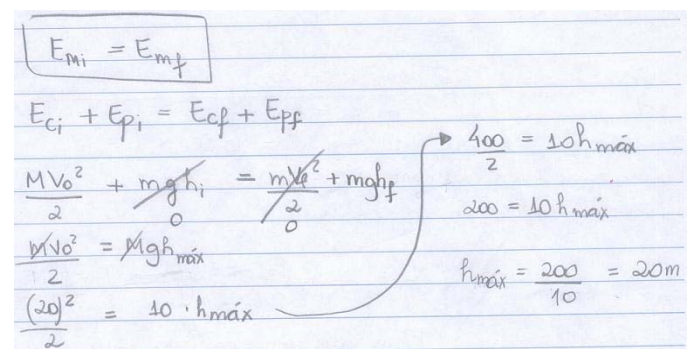 Emi = Emf
Eci + Epi = Ecf + Epf
MVo²/2 + mghi = mVf²/2 + mghf
0 0
MVo²/2 = Mghmáx
(20)²/2 = 10 · hmáx
400/2 = 10hmáx
200 = 10hmáx
hmáx = 200/10 = 20m